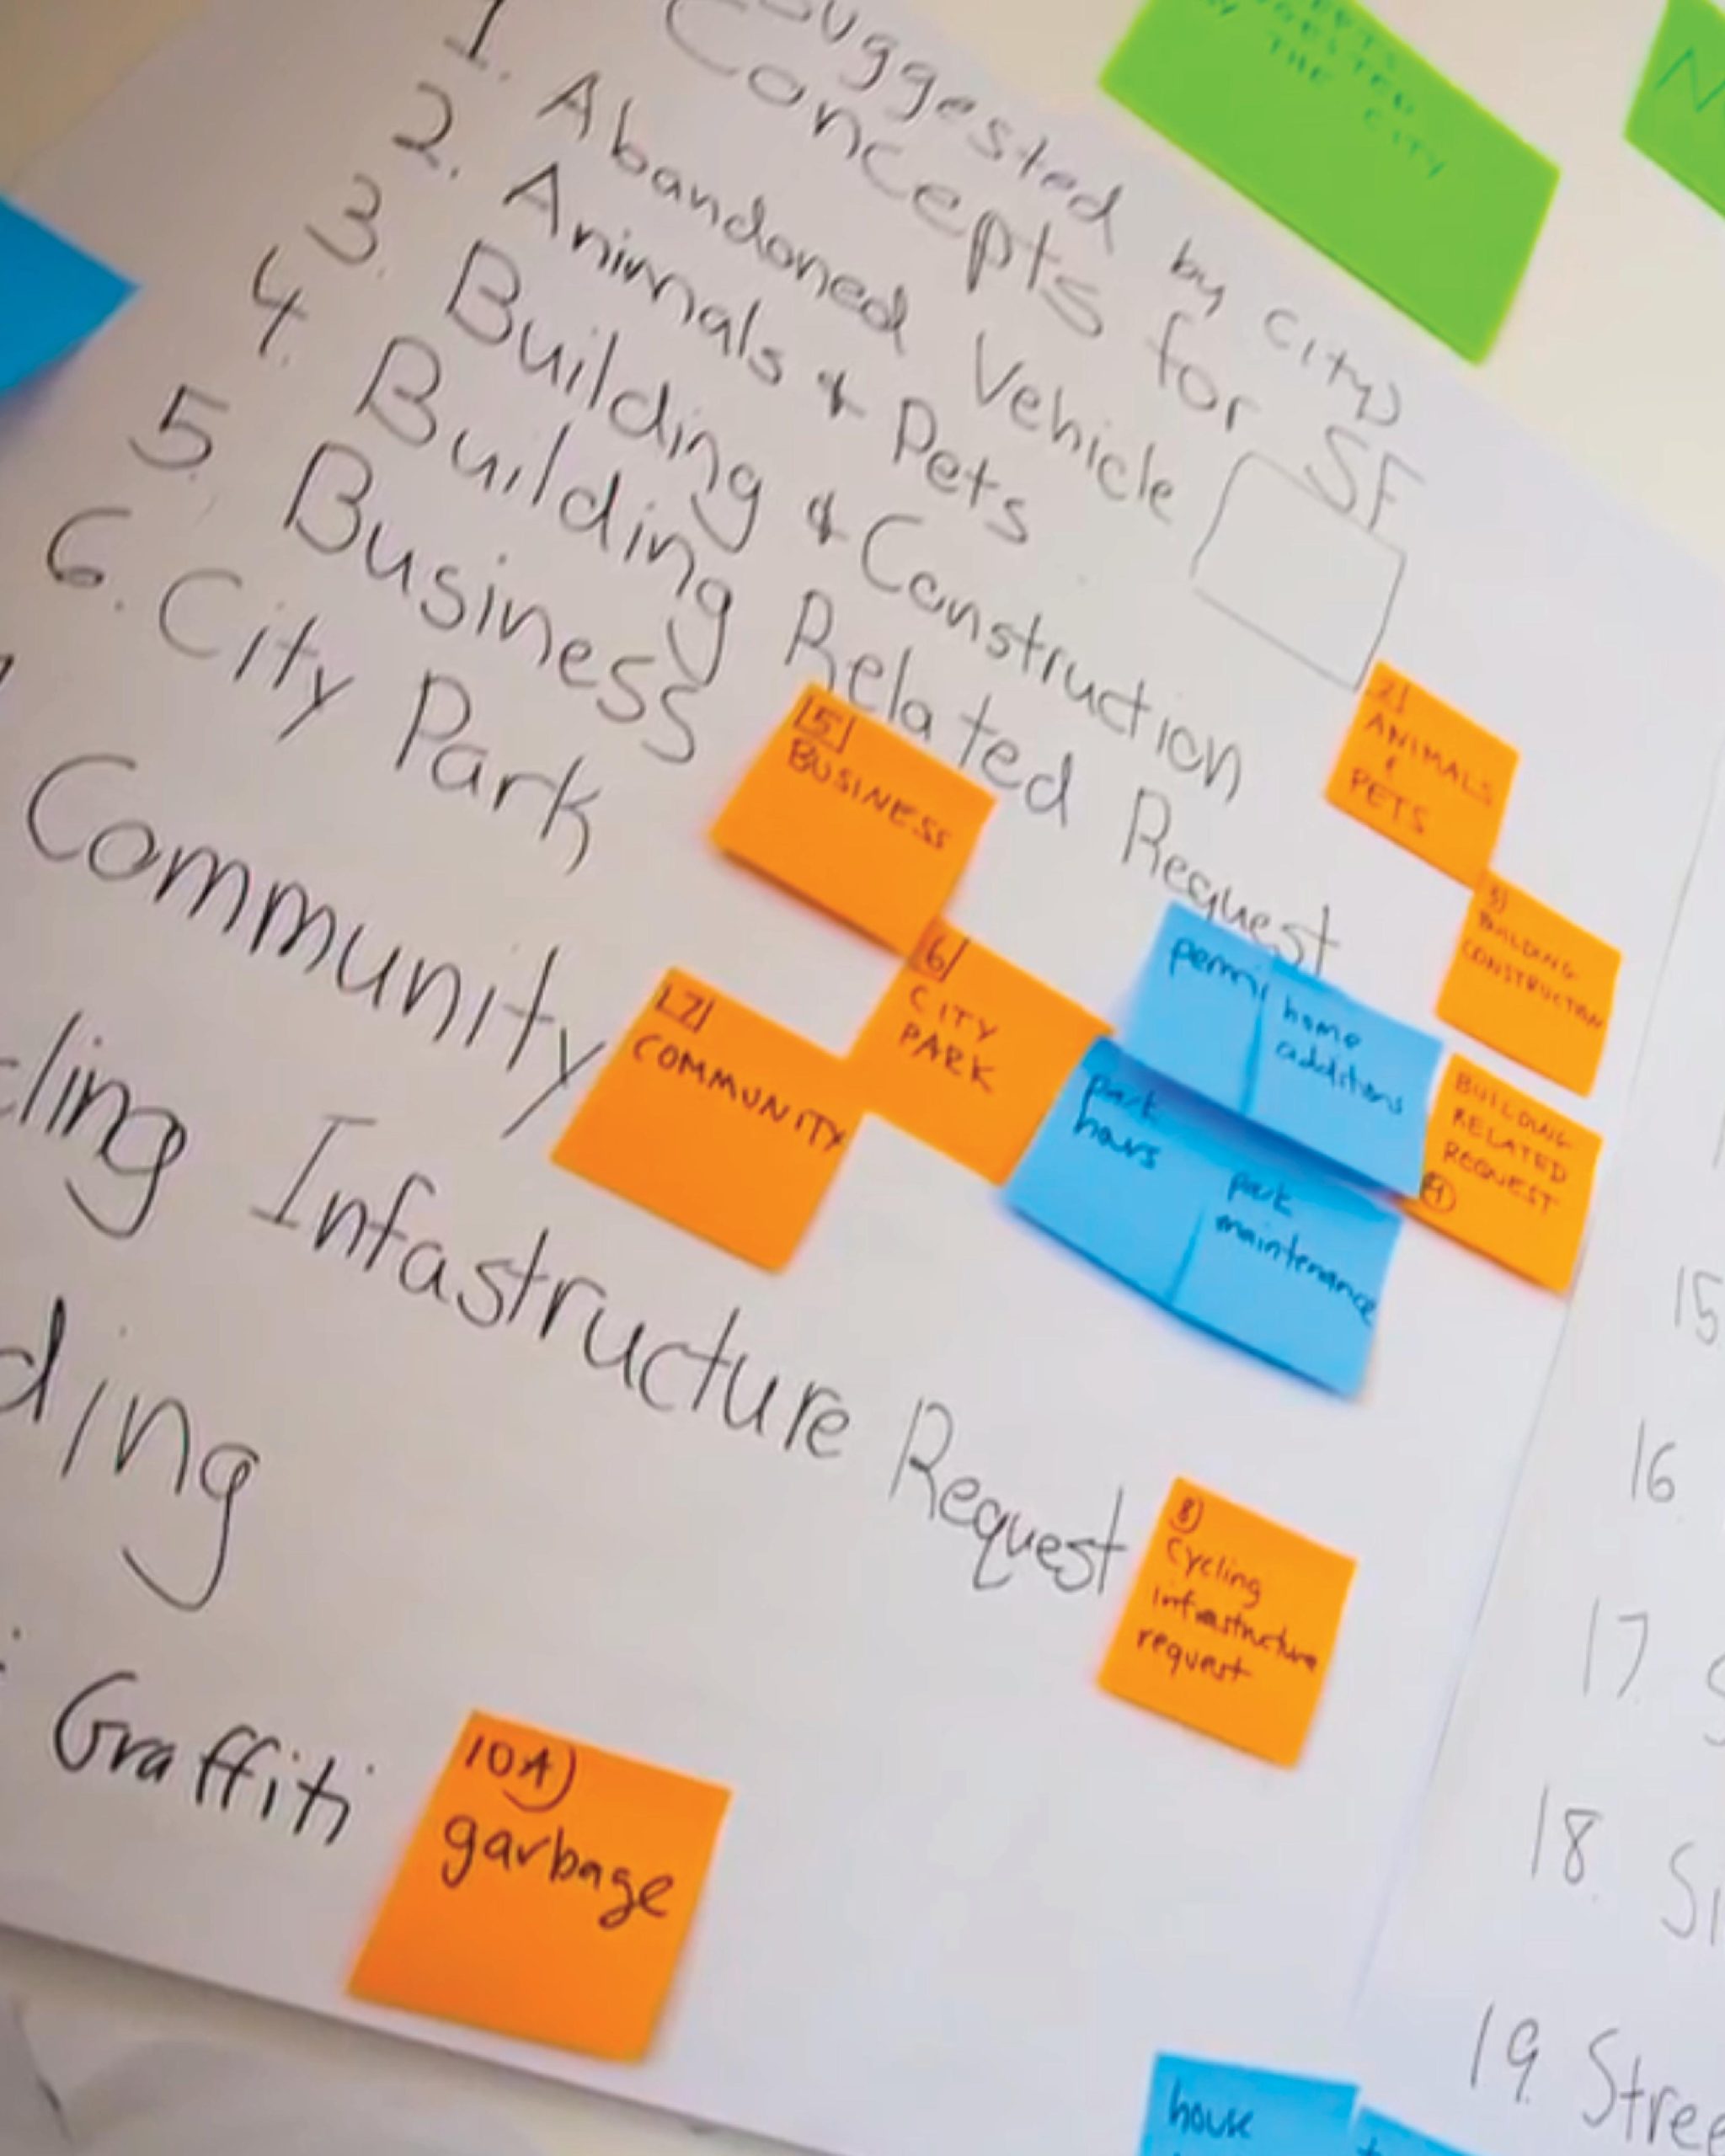 Suggested by city
Concepts for SF
1. Abandoned Vehicle
2. Animals & Pets
3. Building & Construction
4. Building Related Request
5. Business
6. City Park
Community
cling Infastructure Request
ding
Graffiti
THE CITY
2)
ANIMALS
&
PETS
3)
BUILDING
CONSTRUCTION
BUILDING
RELATED
REQUEST
4
5)
BUSINESS
6)
CITY
PARK
7)
COMMUNITY
home
additions
park
hours
park
maintenance
8)
Cycling
infrastructure
request
10A)
garbage
15
16
17
18.
19. Stree
house